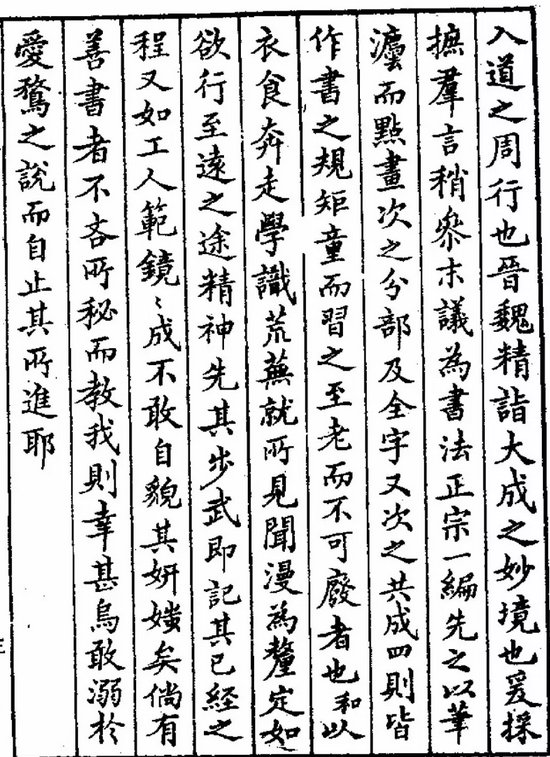 入道之周行也晉魏精詣大成之妙境也爰採
摭羣言稍叅末議為書法正宗一編先之以筆
灋而點畫次之分部及全字又次之共成四則皆
作書之規矩童而習之至老而不可廢者也和以
衣食奔走學識荒蕪就所見聞漫為釐定如
欲行至遠之途精神先其步武即記其已經之
程又如工人範鏡〻成不敢自貌其妍媸矣倘有
善書者不吝所秘而教我則幸甚烏敢溺於
愛鶩之說而自止其所進耶